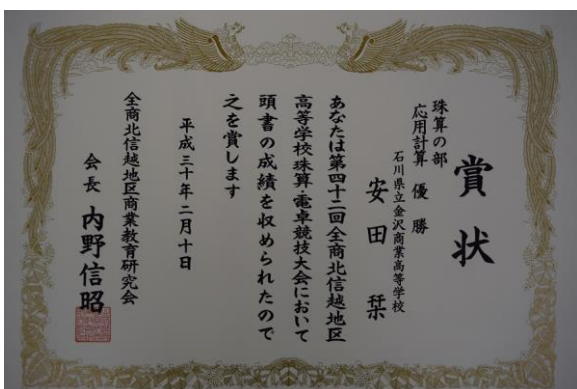 賞状
珠算の部
応用計算 優勝
石川県立金沢商業高等学校
安田 栞
あなたは第四十二回全商北信越地区
高等学校珠算・電卓競技大会において
頭書の成績を収められたので
之を賞します
平成三十年二月十日
全商北信越地区商業教育研究会
会長 内野信昭